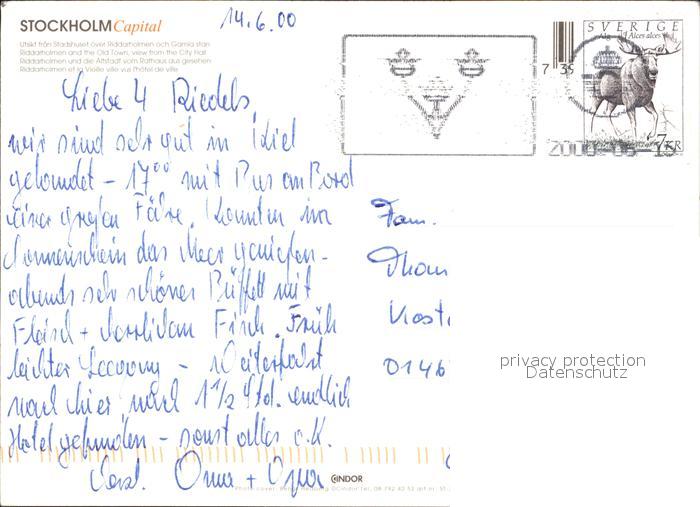 14.6.00
STOCKHOLM Capital
Utsikt från Stadshuset över Riddarholmen och Gamla stan
Riddarholmen and the Old Town, view from the City Hall
Riddarholmen und die Altstadt vom Rathaus aus gesehen
Riddarholmen et la Vieille ville vus l'hôtel de ville
SVERIGE
Älg Alces alces
7 35
7 KR
Liebe 4 Riedels,
wir sind sehr gut in Kiel
gelandet – 17⁰⁰ mit Bus an Bord
einer großen Fähre. Konnten im
Sonnenschein das Meer genießen –
abends sehr schönes Büffett mit
Fleisch + herrlichem Fisch. Früh
leichter Seegang – Weiterfahrt
nach hier, nach 1½ Std. endlich
Hotel gefunden – sonst alles o.K.
Herzl. Oma + Opa
Fam.
Thom
Kost
0146
privacy protection
Datenschutz
CINDOR